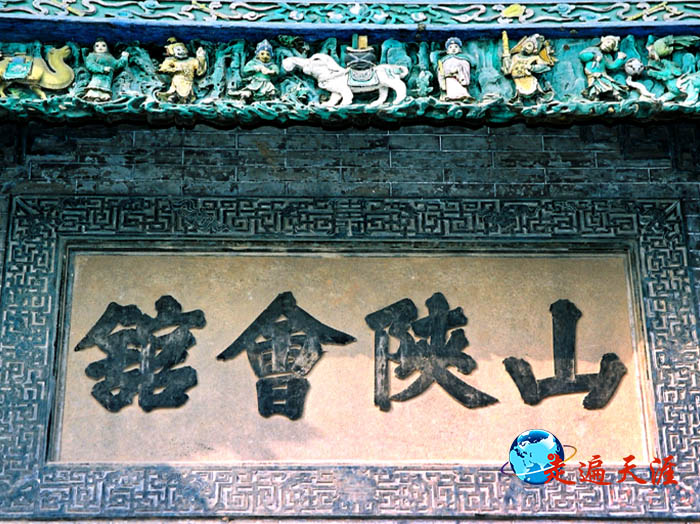 山陝會館
走遍天涯